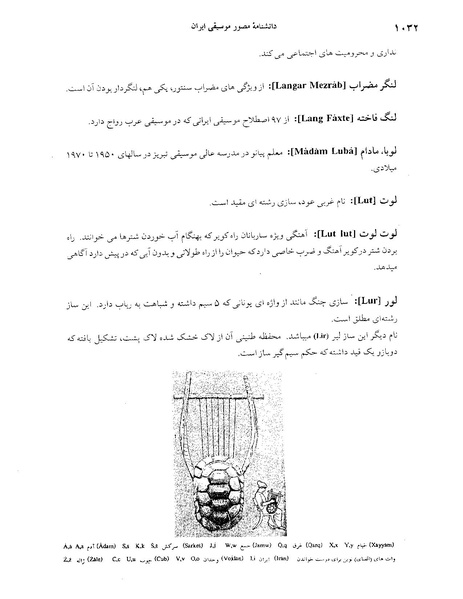 ۱۰۳۲ دانشنامهٔ مصور موسیقی ایران
نداری و محرومیت های اجتماعی می کند.
لنگر مضراب [Langar Mezrâb]: از ویژگی های مضراب سنتور، یکی هم، لنگردار بودن آن است.
لنگ فاخته [Lang Fâxte]: از ۹۷ اصطلاح موسیقی ایرانی که در موسیقی عرب رواج دارد.
لوبا، مادام [Mâdâm Lubâ]: معلم پیانو در مدرسه عالی موسیقی تبریز در سالهای ۱۹۵۰ تا ۱۹۷۰
میلادی.
لوت [Lut]: نام غربی عود، سازی رشته ای مقید است.
لوت لوت [Lut lut]: آهنگی ویژه ساربانان راه کویر که بهنگام آب خوردن شترها می خوانند. راه
بردن شتر در کویر آهنگ و ضرب خاصی دارد که حیوان را از راه طولانی و بدون آبی که در پیش دارد آگاهی
میدهد.
لور [Lur]: سازی چنگ مانند از واژه ای یونانی که ۵ سیم داشته و شباهت به رباب دارد. این ساز
رشته‌ای مطلق است.
نام دیگر این ساز لیر (Lir) میباشد. محفظه طنینی آن از لاک خشک شده لاک پشت، تشکیل یافته که
دو بازو یک قید داشته که حکم سیم گیر ساز است.
A,a A,a آدم (Âdam) S,s K,k Š,š سرکش (Sarkeš) J,j W,w جمع (Jamw) Q,q غرق (Qarq) X,x Y,y خیام (Xayyâm)
Z,ž ژاله (Žâle) C,c U,u چوب (Cub) V,v O,o وجدان (Vojdân) I,i ایران (Irân) وات های (الفبای) نوین برای درست خواندن